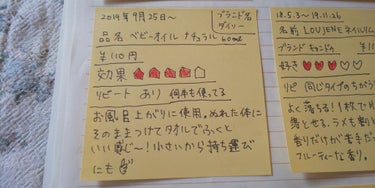 2019年9月25日〜
ブランド名
ダイソー
品名 ベビーオイル ナチュラル 60ml
¥110円
効果
リピート あり 何本も使ってる
お風呂上がりに使用。ぬれた体に
そのままつけてタオルでふくと
いい感じ〜!小さいから持ち運び
にも
18.5.3〜19.11.26
名前 LOUJENE ネイルリム
ブランド キャンドゥ
¥11
好き
リピ 同じタイプのちがう
よく落ちる!1杯で片
落とせる。ラメも割と
香りだけが苦手だっ
フルーティーな香り。